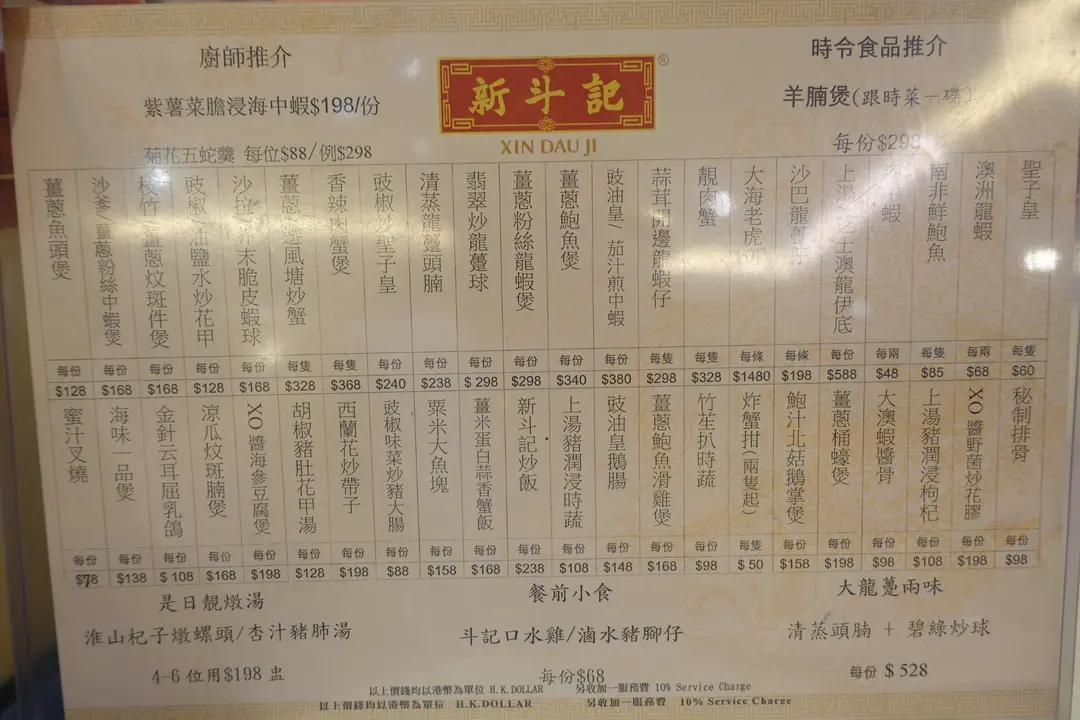 廚師推介
紫薯菜膽浸海中蝦$198/份
菊花五蛇羹 每位$88/例$298
新斗記®
XIN DAU JI
時令食品推介
羊腩煲(跟時菜一碟)
每份$298
聖子皇 每隻 $60
澳洲龍蝦 每兩 $68
南非鮮鮑魚 每隻 $85
蝦 每兩 $48
上湯芝士澳龍伊底 每份 $588
沙巴龍躉仔 每條 $198
大海老虎 每條 $1480
靚肉蟹 每隻 $328
蒜茸開邊龍蝦仔 每隻 $298
豉油皇/茄汁煎中蝦 每份 $380
薑蔥鮑魚煲 每份 $340
薑蔥粉絲龍蝦煲 每份 $298
翡翠炒龍躉球 每份 $298
清蒸龍躉頭腩 每份 $238
豉椒炒聖子皇 每份 $240
香辣肉蟹煲 每隻 $368
薑蔥/避風塘炒蟹 每隻 $328
沙拉/芥末脆皮蝦球 每份 $168
豉椒/油鹽水炒花甲 每份 $128
枝竹/薑蔥炆斑件煲 每份 $168
沙爹/薑蔥粉絲中蝦煲 每份 $168
薑蔥魚頭煲 每份 $128
秘制排骨 每份 $98
XO醬野菌炒花膠 每份 $198
上湯豬潤浸枸杞 每份 $108
大澳蝦醬骨 每份 $98
薑蔥桶蠔煲 每份 $198
鮑汁北菇鵝掌煲 每份 $158
炸蟹拑(兩隻起) 每隻 $50
竹笙扒時蔬 每份 $98
薑蔥鮑魚滑雞煲 每份 $168
豉油皇鵝腸 每份 $148
上湯豬潤浸時蔬 每份 $108
新斗記炒飯 每份 $238
薑米蛋白蒜香蟹飯 每份 $168
粟米大魚塊 每份 $158
豉椒味菜炒豬大腸 每份 $88
西蘭花炒帶子 每份 $198
胡椒豬肚花甲湯 每份 $128
XO醬海參豆腐煲 每份 $198
涼瓜炆斑腩煲 每份 $168
金針云耳屈乳鴿 每份 $108
海味一品煲 每份 $138
蜜汁叉燒 每份 $78
是日靚燉湯
淮山杞子燉螺頭/杏汁豬肺湯
4-6 位用$198 盅
餐前小食
斗記口水雞/滷水豬腳仔
每份$68
大龍躉兩味
清蒸頭腩 + 碧綠炒球
每份 $528
以上價錢均以港幣為單位 H.K.DOLLAR 另收加一服務費 10% Service Charge
以上價錢均以港幣為單位 H.K.DOLLAR 另收加一服務費 10% Service Charge